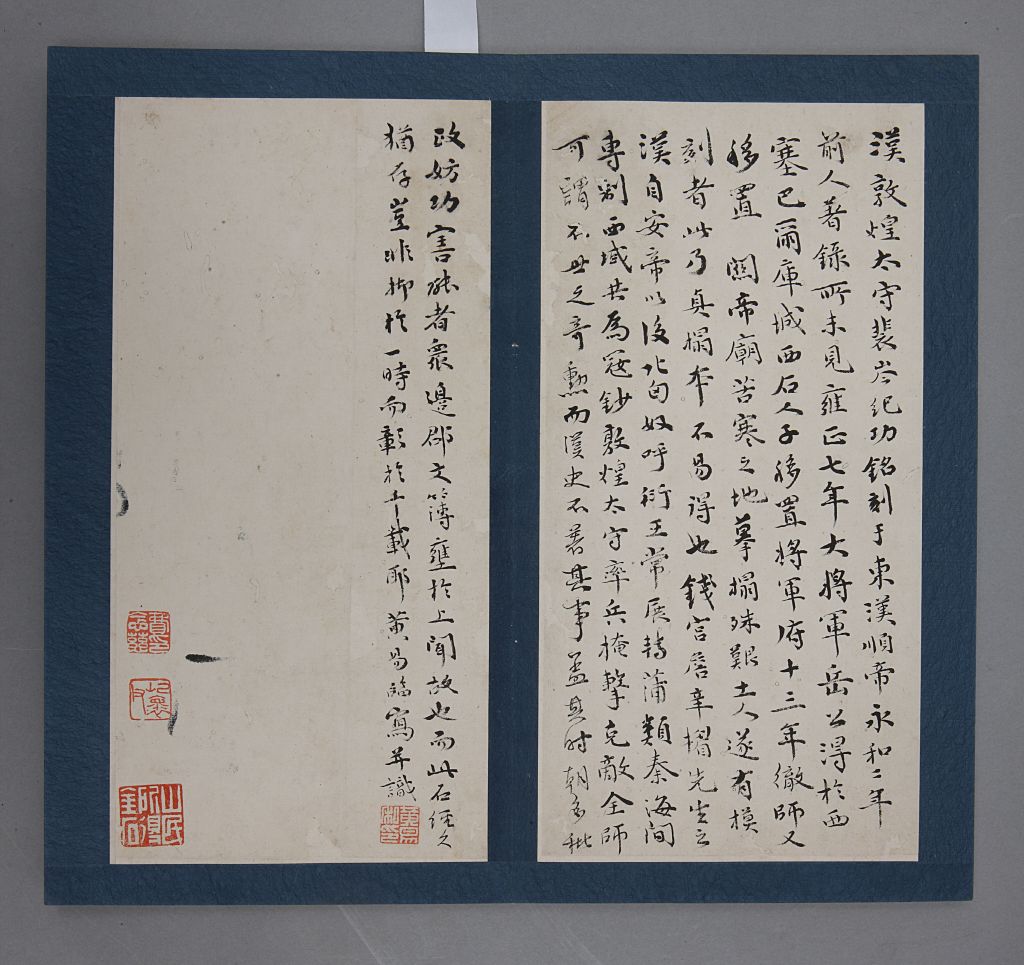 漢敦煌太守裴岑紀功銘刻于東漢順帝永和二年
前人著錄所未見雍正七年大將軍岳公得於西
塞巴爾庫城西石人子移置將軍府十三年徹師又
移置 關帝廟苦寒之地摹搨殊艱土人遂有模
刻者此乃真搨本不易得也錢宮詹辛楣先生云
漢自安帝以後北匈奴呼衍王常展轉蒲類秦海間
專制西域共為寇鈔敦煌太守率兵掩擊克敵全師
可謂不世之奇勳而漢史不著其事蓋其時朝多秕
政妨功害能者衆邊郡文簿壅於上聞故也而此石經久
猶存豈非抑於一時而彰於千載耶黃易臨寫并識